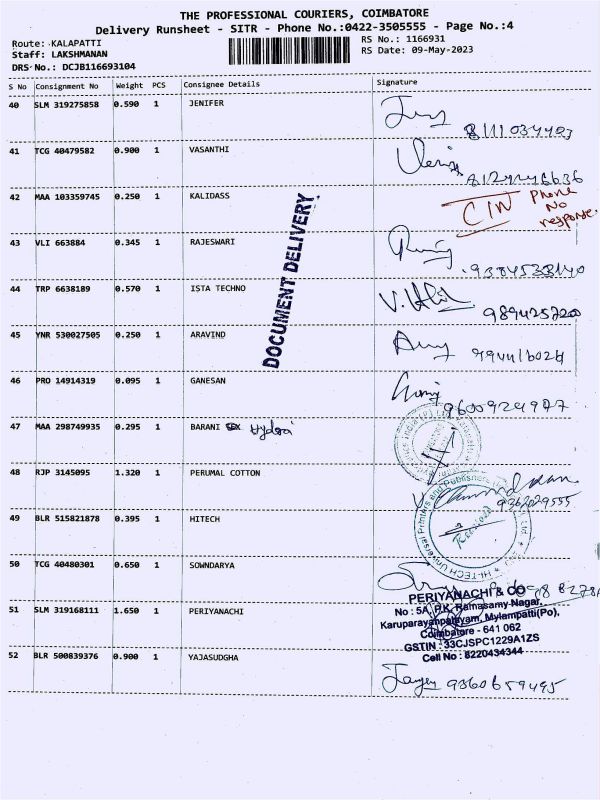 THE PROFESSIONAL COURIERS, COIMBATORE
Delivery Runsheet - SITR - Phone No.:0422-3505555 - Page No.:4
Route: KALAPATTI
RS No.: 1166931
Staff: LAKSHMANAN
RS Date: 09-May-2023
DRS No.: DCJB116693104
S No Consignment No Weight PCS Consignee Details Signature
40 SLM 319275858 0.590 1 JENIFER
41 TCG 40479582 0.900 1 VASANTHI
42 MAA 103359745 0.250 1 KALIDASS
CIN Phone No response.
43 VLI 663884 0.345 1 RAJESWARI
44 TRP 6638189 0.570 1 ISTA TECHNO
9894257200
DOCUMENT DELIVERY
45 YNR 530027505 0.250 1 ARAVIND
46 PRO 14914319 0.095 1 GANESAN
9600924977
47 MAA 298749935 0.295 1 BARANI
48 RJP 3145095 1.320 1 PERUMAL COTTON
9362029555
49 BLR 515821878 0.395 1 HITECH
HI-TECH Universal Printers and Publishers
Received
50 TCG 40480301 0.650 1 SOWNDARYA
51 SLM 319168111 1.650 1 PERIYANACHI
PERIYANACHI & CO
No : 5A, P.K. Ramasamy Nagar,
Karuparayanpalayam, Mylampatti(Po),
Coimbatore - 641 062
GSTIN : 33CJSPC1229A1ZS
Cell No : 8220434344
52 BLR 500839376 0.900 1 YAJASUDGHA
9360659495